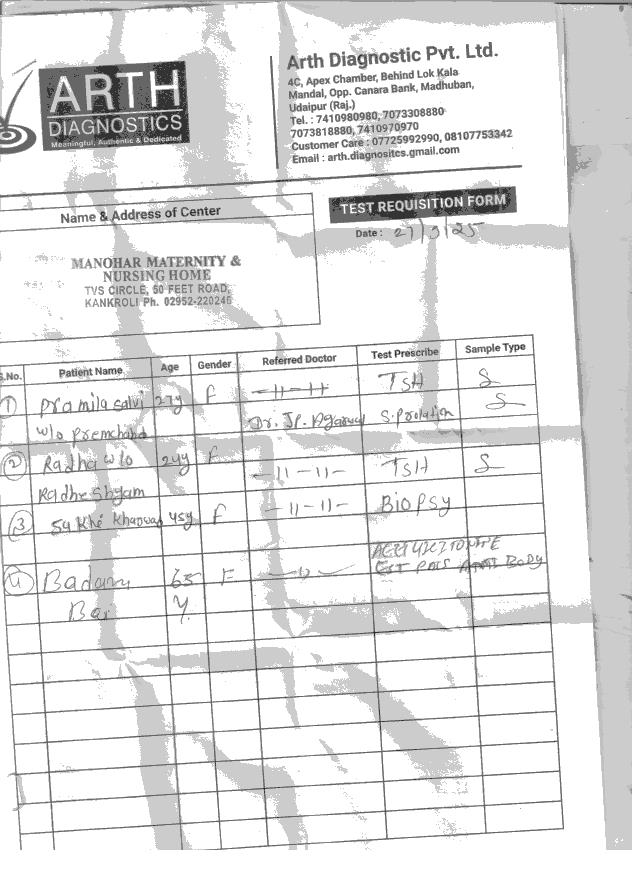 ARTH
DIAGNOSTICS
Meaningful, Authentic & Dedicated
Arth Diagnostic Pvt. Ltd.
4C, Apex Chamber, Behind Lok Kala
Mandal, Opp. Canara Bank, Madhuban,
Udaipur (Raj.)
Tel. : 7410980980, 7073308880
7073818880, 7410970970
Customer Care : 07725992990, 08107753342
Email : arth.diagnositcs.gmail.com
Name & Address of Center
TEST REQUISITION FORM
Date : 27/3/25
MANOHAR MATERNITY &
NURSING HOME
TVS CIRCLE, 50 FEET ROAD,
KANKROLI Ph. 02952-220246
S.No. Patient Name Age Gender Referred Doctor Test Prescribe Sample Type
1 Pramila Salvi 27y F —11—11 TSH S
w/o Premchand Dr. J.P. Agarwal S. Prolation S
2 Radha w/o 24y F —11—11— TSH S
Radhe Shyam
3 45y F —11—11— Biopsy
4 Badam 65 F —11— BODY
Bai Y.